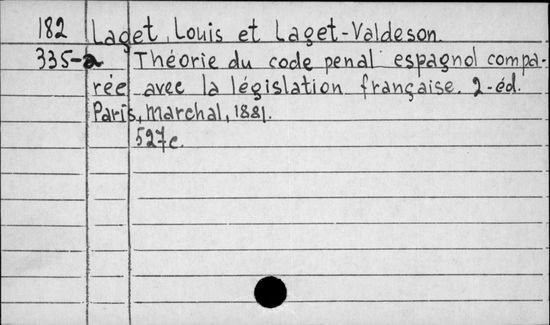 182 Laget, Louis et Laget-Valdeson.
335-a Théorie du code penal espagnol compa-
rée avec la législation française. 2-éd.
Paris, Marchal, 1881.
527c.